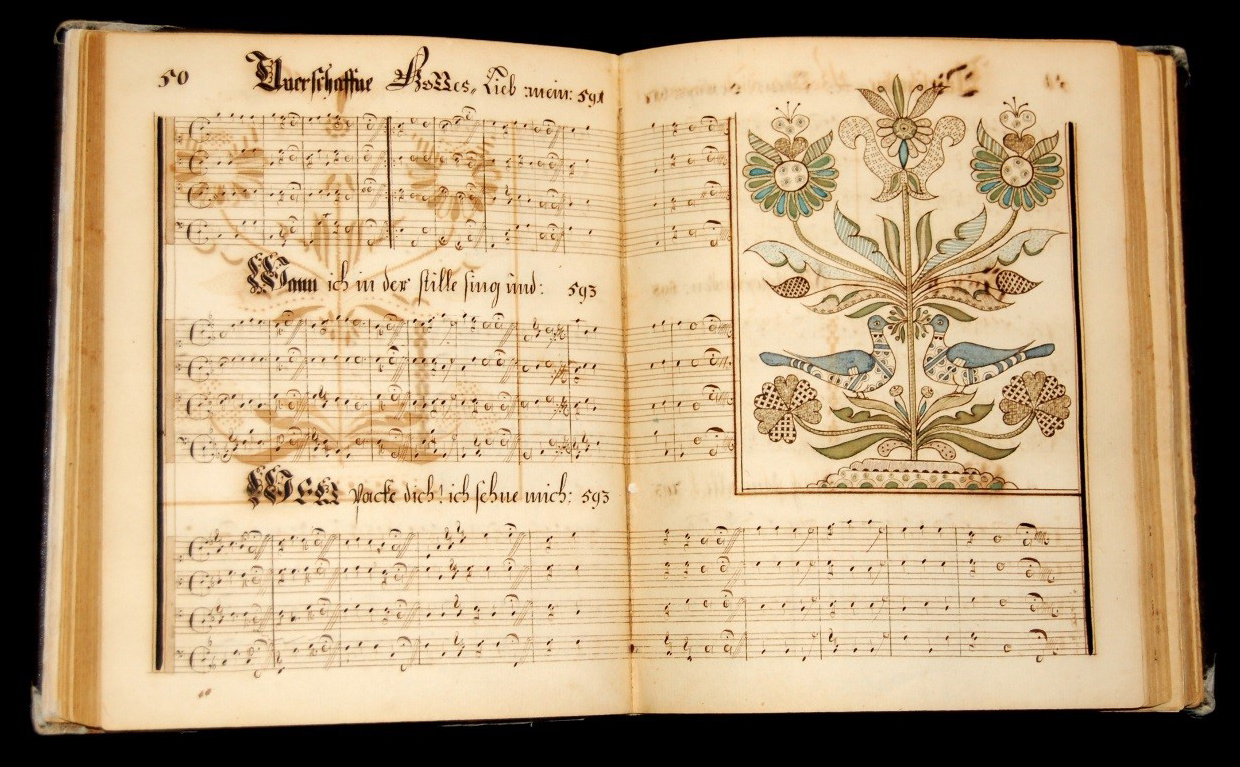 50
Unerschaffne Gottes, Lieb :mein: 591
Wann ich in der stille sing und: 593
Welt packe dich! ich sehne mich: 593